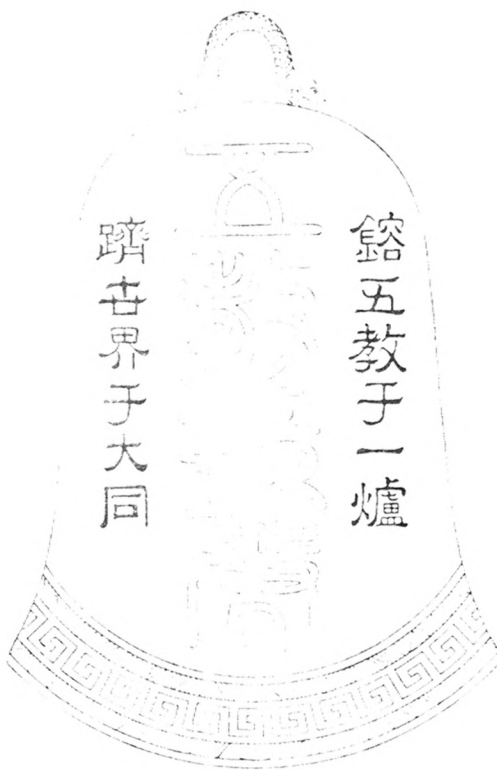 鎔五教于一爐
躋世界于大同